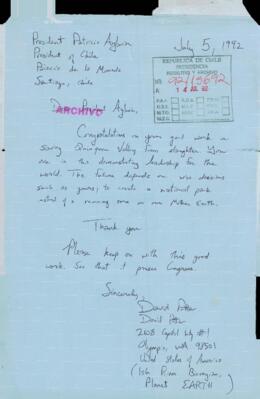 July 5, 1992
President Patricio Aylwin
President of Chile
Palacio de la Moneda
Santiago, Chile
REPUBLICA DE CHILE
PRESIDENCIA
REGISTRO Y ARCHIVO
NR. 92/13692
A 14 JUL 92
Dear President Aylwin,
ARCHIVO
Congratulations on your good work in
saving Quinquen Valley from slaughter. Your
one is this demonstrating leadership for the
world. The future depends on wise decisions
such as yours; to create a national park
instead of a running sore on our Mother Earth.
Thank you
Please keep on with this good
work. See that it passes Congress.
Sincerely,
David
David
Capitol Way #1
Olympia, WA 98501
United States of America
Planet EARTH)